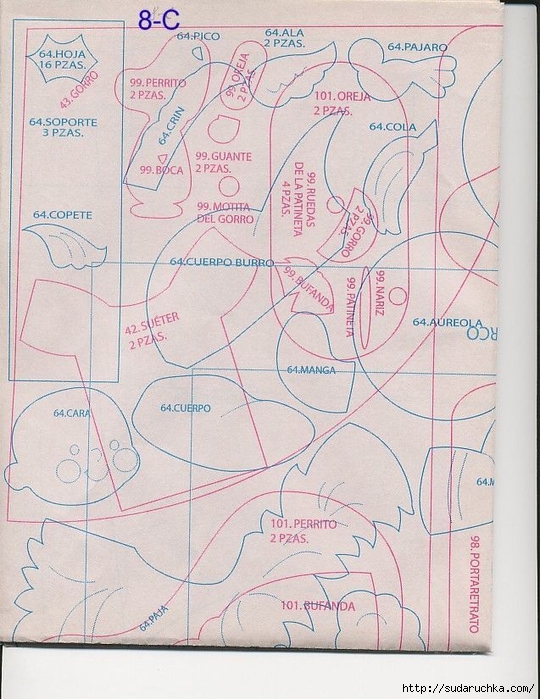 8-C
64.PICO
64.ALA
2 PZAS.
64.HOJA
16 PZAS.
64.PAJARO
43.GORRO
99.PERRITO
2 PZAS.
99.OREJA
2 PZAS.
101.OREJA
2 PZAS.
64.SOPORTE
3 PZAS.
64.CRIN
64.COLA
99.BOCA
99.GUANTE
2 PZAS.
99.RUEDAS
DE LA PATINETA
4 PZAS.
99.MOTITA
DEL GORRO
99.GORRO
2 PZAS.
64.COPETE
64.CUERPO BURRO
99.BUFANDA
99.PATINETA
99.NARIZ
42.SUÉTER
2 PZAS.
64.AUREOLA
RCO
64.MANGA
64.CARA
64.CUERPO
64.M
101.PERRITO
2 PZAS.
98.PORTARETRATO
64.PAJA
101.BUFANDA
http://sudaruchka.com/